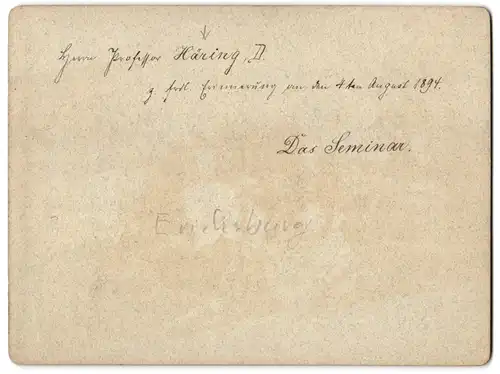 Herrn Professor Häring, D.
z. frdl. Erinnerung an den 4ten August 1894.
Das Seminar.
Erichsburg